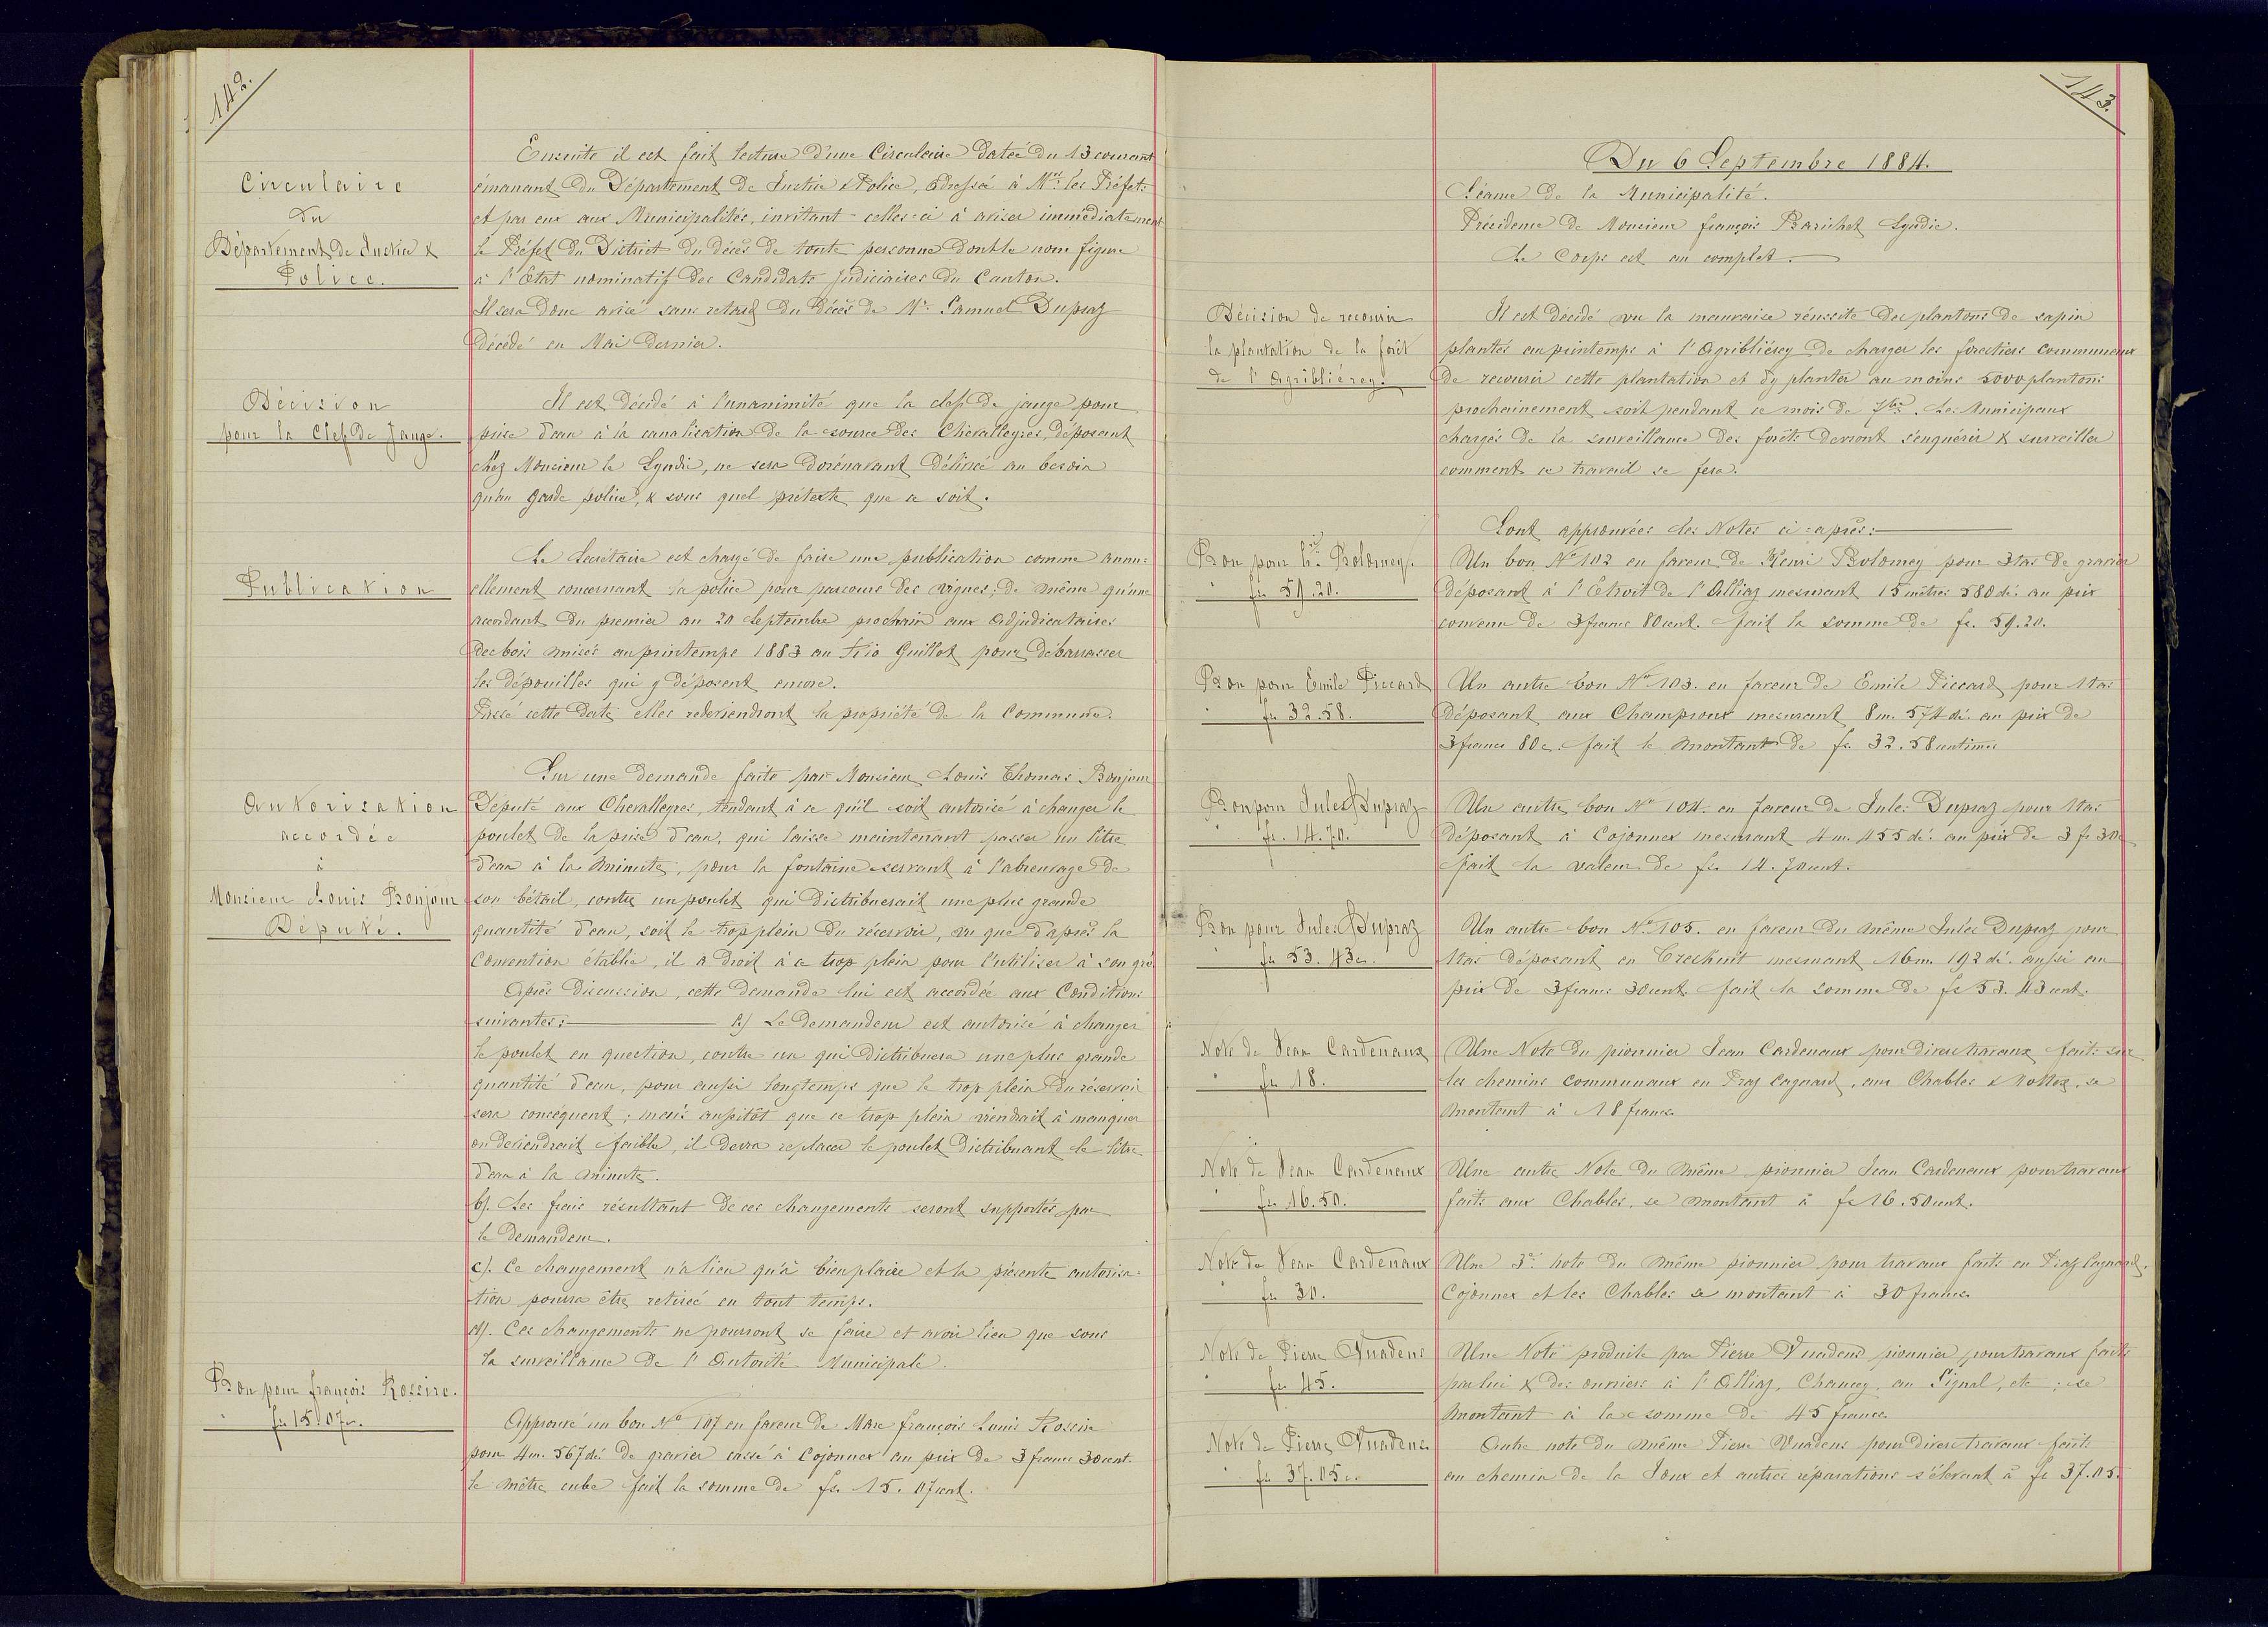 142.
Circulaire
du
Département de Justice &
Police.
Ensuite il est fait lecture d'une Circulaire datée du 13 courant
émanant du Département de Justice & Police, adressée à Mrs les Préfets
et par eux aux Municipalités, invitant celles-ci à aviser immédiatement
le Préfet du District du décès de toute personne dont le nom figure
à l'État nominatif des Candidats judiciaires du Canton.
Il sera donc avisé sans retard du décès de Mr Samuel Dupraz
décédé en Mai dernier.
Décision
pour la Clef de Jauge.
Il est décidé à l'unanimité que la clef de jauge pour
prise d'eau à la canalisation de la source des Chevalleyres, déposant
chez Monsieur le Syndic, ne sera dorénavant délivrée au besoin
qu'au garde police, & sous quel prétexte que ce soit.
Publication
Le Secrétaire est chargé de faire une publication comme annu=
ellement concernant la police pour parcours des vignes; de même qu'une
accordant du premier au 20 Septembre prochain aux adjudicataires
des bois misés au printemps 1883 au Trio Guillot pour débarrasser
les dépouilles qui y déposent encore.
Passé cette date elles redeviendront la propriété de la Commune.
Autorisation
accordée
à
Monsieur Louis Bonjour
Député.
Sur une demande faite par Monsieur Louis Thomas Bonjour
Député aux Chevalleyres, tendant à ce qu'il soit autorisé à changer le
poulet de la prise d'eau, qui laisse maintenant passer un litre
d'eau à la minute, pour la fontaine servant à l'abreuvage de
son bétail, contre un poulet qui distribuerait une plus grande
quantité d'eau, soit le trop plein du réservoir, vu que d'après la
Convention établie, il a droit à ce trop plein pour l'utiliser à son gré.
Après discussion, cette demande lui est accordée aux Conditions
suivantes: a) Le demandeur est autorisé à changer
le poulet en question, contre un qui distribuera une plus grande
quantité d'eau, pour aussi longtemps que le trop plein du réservoir
sera conséquent; mais aussitôt que ce trop plein viendrait à manquer
ou deviendrait faible, il devra replacer le poulet distribuant le litre
d'eau à la minute.
b). Les frais résultant de ces changements seront supportés par
le demandeur.
c). Ce changement n'a lieu qu'à bien plaire et la présente autorisa=
tion pourra être retirée en tout temps.
d). Ces changements ne pourront se faire et avoir lieu que sous
la surveillance de l'Autorité Municipale.
Bon pour françois Rossire.
" frs 15.07c.
Approuvé un bon No 107 en faveur de Marc françois Louis Rossire
pour 4m. 567 dé. de gravier cassé à Cojonnex au prix de 3 francs 30 cent.
le mètre cube fait la somme de frs 15.07 cent.
143.
Du 6 Septembre 1884.
Séance de la Municipalité.
Présidence de Monsieur françois Barichet Syndic.
Le Corps est au complet.
Décision de recourir
la plantation de la forêt
de l'Agribliérey.
Il est décidé vu la mauvaise réussite des plantons de sapin
plantés au printemps à l'Agribliérey de charger les forestiers communaux
de recourir cette plantation et d'y planter au moins 5000 plantons
prochainement soit pendant ce mois de 7bre. Les Municipaux
chargés de la surveillance des forêts devront s'enquérir & surveiller
comment ce travail se fera.
Sont approuvées les Notes ci-après:
Bon pour Hri Bolomey.
" frs 59.20.
Un bon No 102 en faveur de Henri Bolomey pour 3 tas de gravier
déposant à l'Etroit de l'Alliaz mesurant 15 mètres 580 dé. au prix
convenu de 3 francs 80 cent. fait la somme de fr. 59.20.
Bon pour Emile Piccard
" frs 32.58.
Un autre bon No 103. en faveur de Emile Piccard pour 1 tas
déposant aux Champroux mesurant 8 m. 574 dé. au prix de
3 francs 80 c. fait le montant de fr. 32.58 centimes
Bon pour Jules Dupraz
" frs. 14.70.
Un autre bon No 104. en faveur de Jules Dupraz pour 1 tas
déposant à Cojonnex mesurant 4 m. 455 dé. au prix de 3 fr 30c
fait la valeur de frs 14.70 cent.
Bon pour Jules Dupraz
frs 53.43c.
Un autre bon No 105. en faveur du même Jules Dupraz pour
1 tas déposant en Crechuit mesurant 16 m. 192 dé. aussi au
prix de 3 francs 30 cent. fait la somme de fr 53.43 cent.
Note de Jean Cardenaux
" frs 18.
Une Note du pionnier Jean Cardenaux pour divers travaux faits sur
les chemins communaux en Praz Cagnard, aux Chables & , se
montant à 18 francs
Note de Jean Cardenaux
" frs 16.50.
Une autre Note du même pionnier Jean Cardenaux pour travaux
faits aux Chables, se montant à fr 16.50 cent.
Note de Jean Cardenaux
" frs 30.
Une 3e note du même pionnier pour travaux faits en Praz Cagnard,
Cojonnex et les Chables se montant à 30 francs
Note de Pierre Vuadens
" frs 45.
Une Note produite par Pierre Vuadens pionnier pour travaux faits
par lui & des ouvriers à l'Alliaz, Chancey, au Signal, etc; se
montant à la somme de 45 francs
Note de Pierre Vuadens
" frs 37.05c.
Autre note du même Pierre Vuadens pour divers travaux faits
au chemin de la Joux et autres réparations s'élevant à fr 37.05.